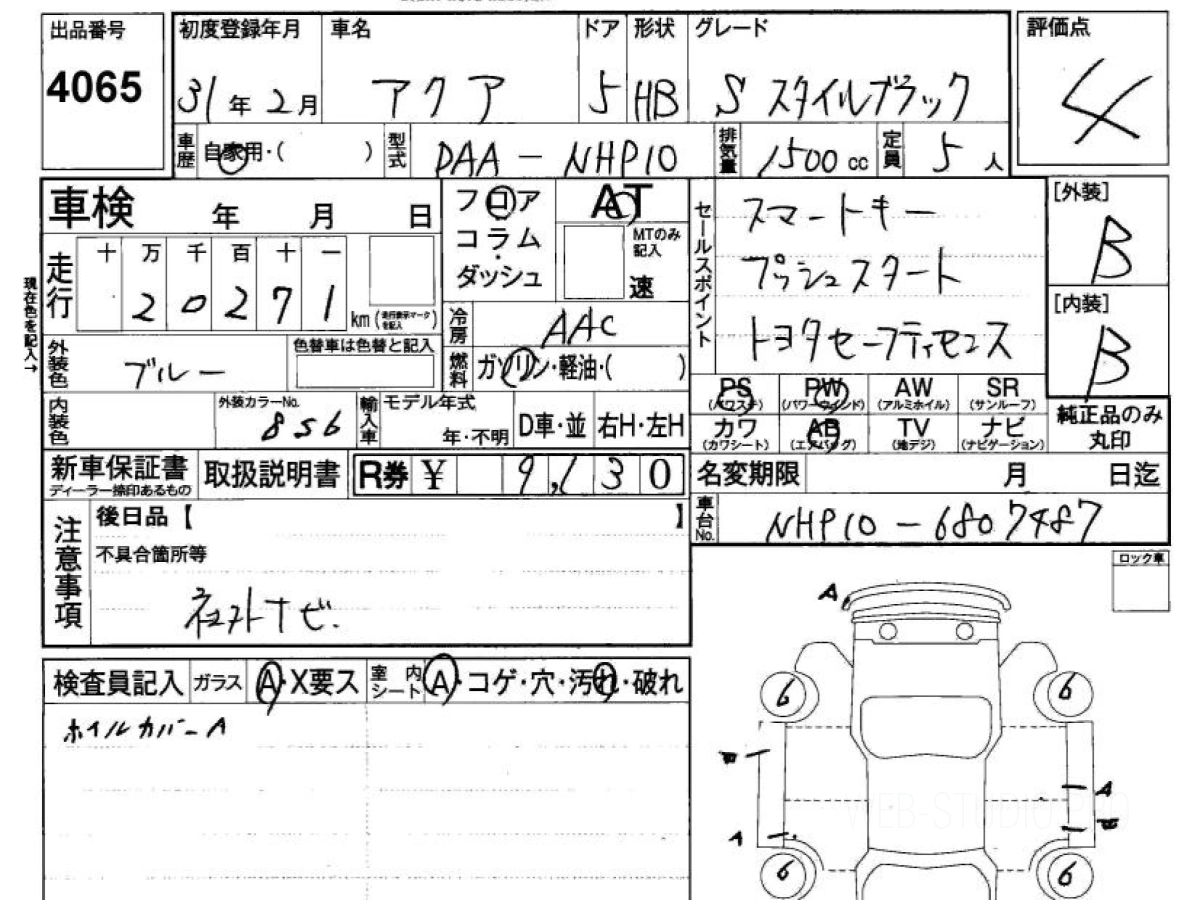 出品番号
4065
初度登録年月
31年2月
車名
アクア
ドア
5
形状
HB
グレード
S スタイルブラック
評価点
4
車歴
自家用・( )
型式
DAA-NHP10
排気量
1500 cc
定員
5人
車検 年 月 日
フロア
コラム・
ダッシュ
AT
MTのみ
記入
速
セールスポイント
スマートキー
プッシュスタート
トヨタセーフティセンス
[外装]
B
[内装]
B
現在色を記入→
走行
十 万 千 百 十 一
2 0 2 7 1
km (走行表示マークを記入)
冷房
AAC
外装色
ブルー
色替車は色替と記入
燃料
ガソリン・軽油・( )
PS
(パワステ)
PW
(パワーウィンド)
AW
(アルミホイル)
SR
(サンルーフ)
カワ
(カワシート)
AB
(エアバッグ)
TV
(地デジ)
ナビ
(ナビゲーション)
純正品のみ
丸印
内装色
外装カラーNo.
8S6
輸入車
モデル年式
年・不明
D車・並
右H・左H
新車保証書
ディーラー捺印あるもの
取扱説明書
R券 ¥ 9,130
名変期限 月 日迄
車台No.
NHP10-6807487
注意事項
後日品【 】
不具合箇所等
ネクストナビ.
ロック車
検査員記入
ガラス
A・X要ス
室内
シート
A・コゲ・穴・汚れ・破れ
ホイルカバーA
A
6
6
A
A
6
6
WEB-STUDIO